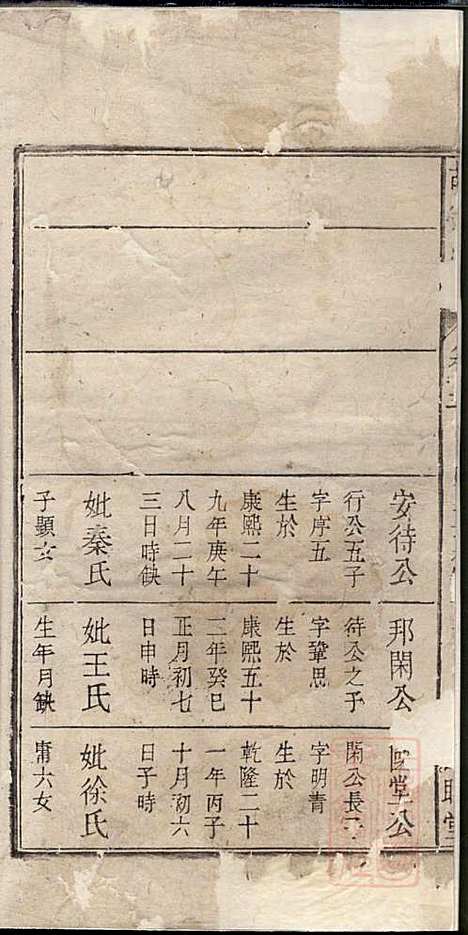 安待公
行公五子
字序五
生於
康熙二十
九年庚午
八月二十
三日時缺
妣秦氏
子顯女
邦閑公
待公之子
字鞏思
生於
康熙五十
二年癸巳
正月初七
日申時
妣王氏
生年月缺
國堂公
閑公長子
字明青
生於
乾隆二十
一年丙子
十月初六
日子時
妣徐氏
庸六女